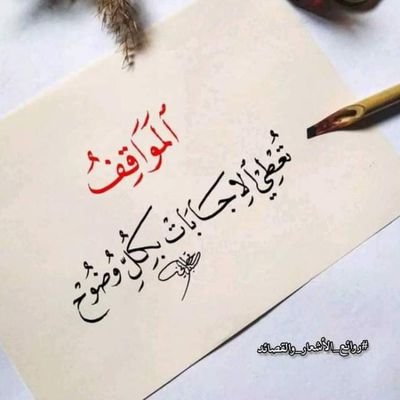 ٱلْمَوَاقِفُ
تُعْطِي ٱلإِجَابَاتْ بِكُلِّ وُضُوحْ
#روائع_الأشعار_والقصائد